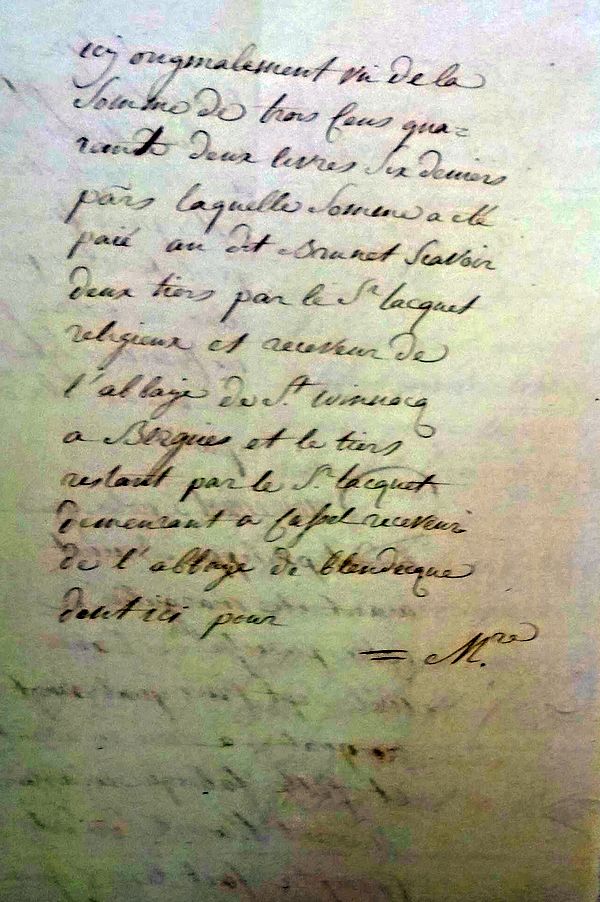 icy originalement vu de la
Somme de trois Cens qua=
rante deux livres Six deniers
pars laquelle Somme a eté
paié au dit Brunet Scavoir
deux tiers par le Sr. lacquet
religieux et receveur de
l'abbaÿe de St. winnocq
a Bergues et le tiers
restant par le Sr. lacquet
demeurant a Cassel receveur
de l'abbaye de blendecque
dont ici pour
= Mre.